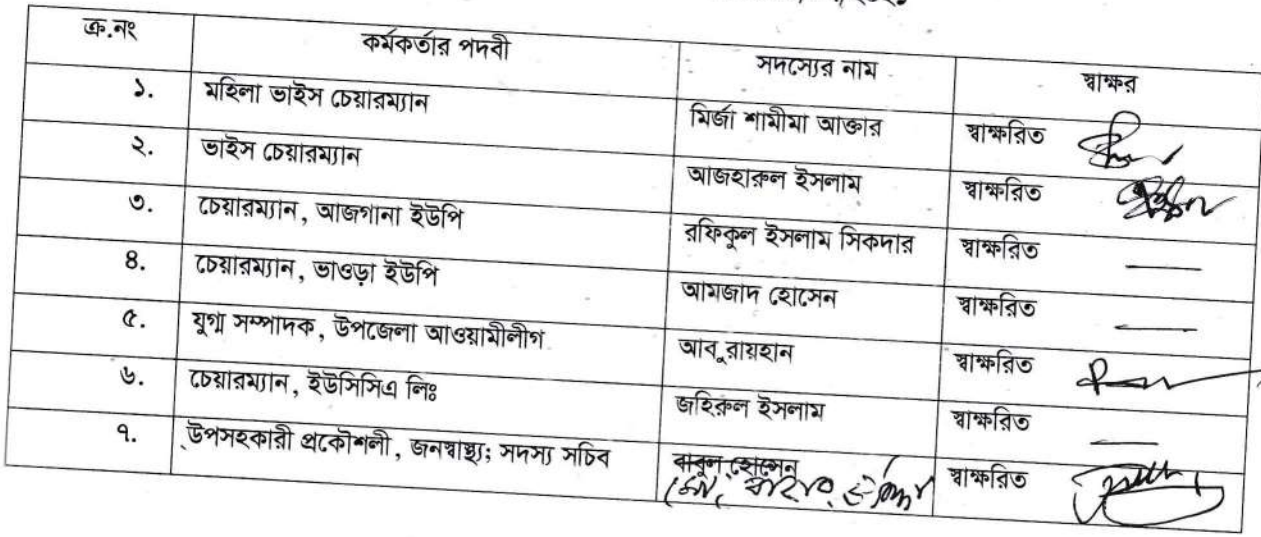 ক্র.নং কর্মকর্তার পদবী সদস্যের নাম স্বাক্ষর
১. মহিলা ভাইস চেয়ারম্যান মির্জা শামীমা আক্তার স্বাক্ষরিত
২. ভাইস চেয়ারম্যান আজহারুল ইসলাম স্বাক্ষরিত
৩. চেয়ারম্যান, আজগানা ইউপি রফিকুল ইসলাম সিকদার স্বাক্ষরিত
৪. চেয়ারম্যান, ভাওড়া ইউপি আমজাদ হোসেন স্বাক্ষরিত
৫. যুগ্ম সম্পাদক, উপজেলা আওয়ামীলীগ আবু রায়হান স্বাক্ষরিত
৬. চেয়ারম্যান, ইউসিসিএ লিঃ জহিরুল ইসলাম স্বাক্ষরিত
৭. উপসহকারী প্রকৌশলী, জনস্বাস্থ্য; সদস্য সচিব বাবুল হোসেন স্বাক্ষরিত